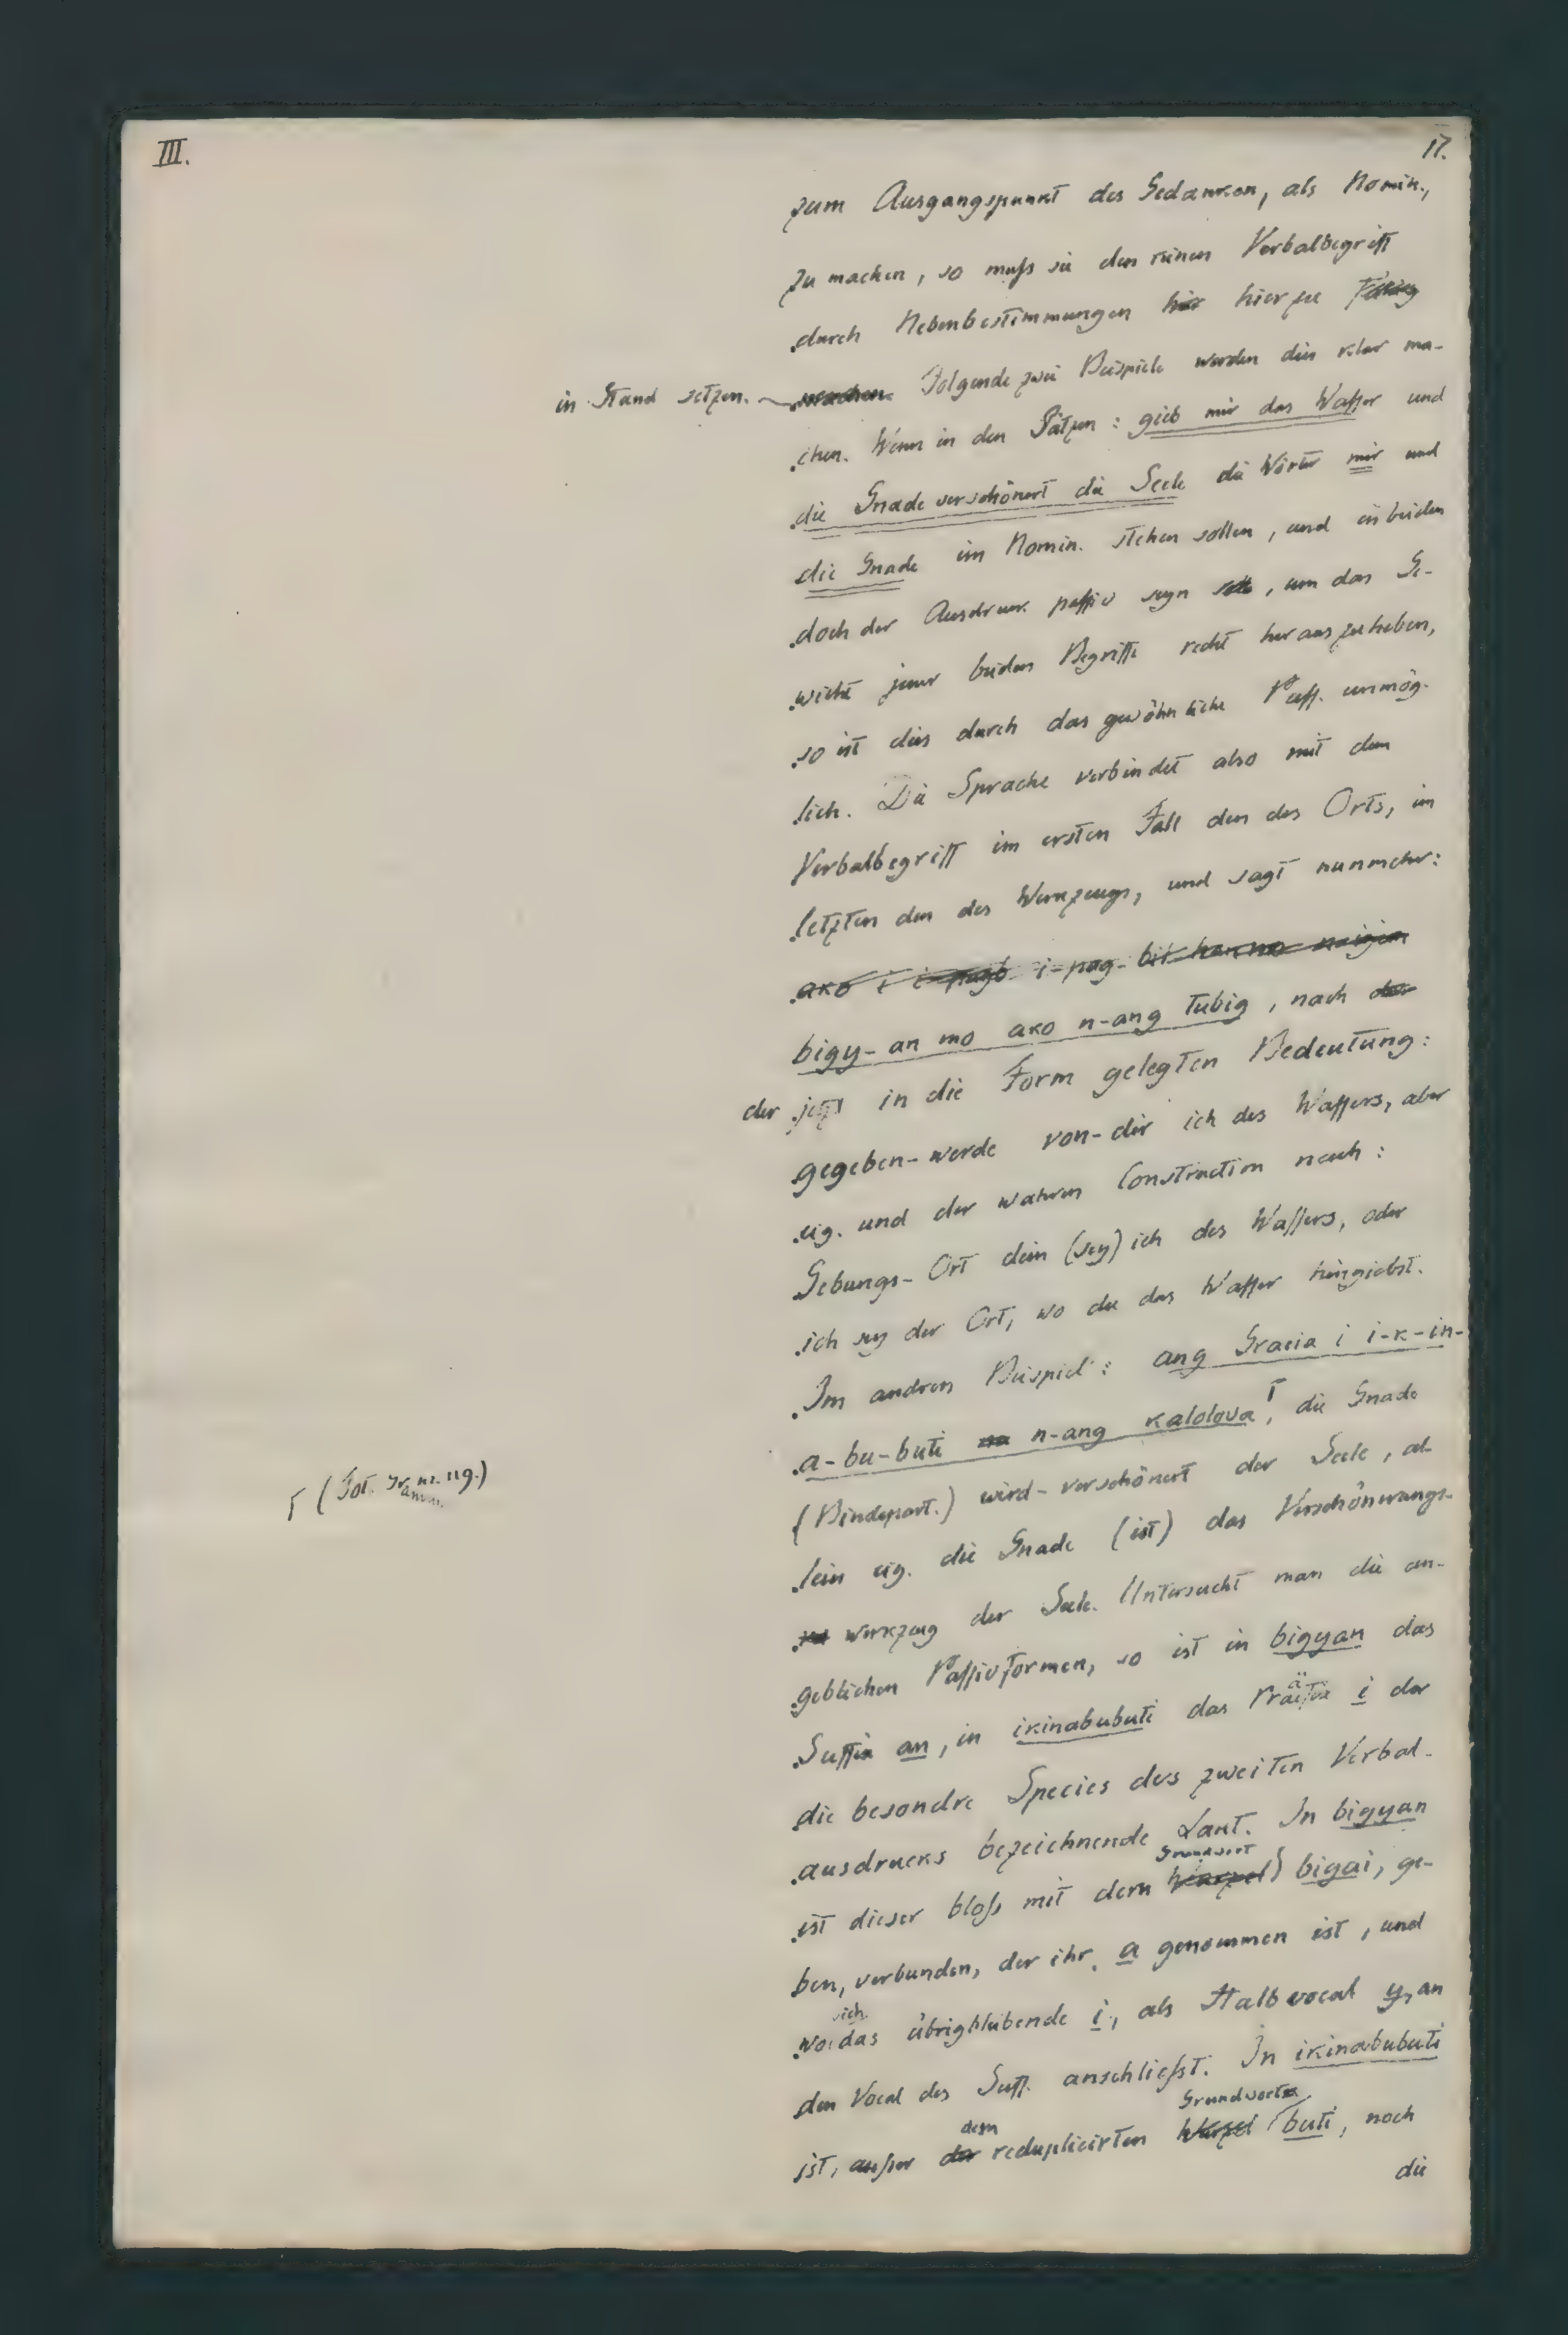 III.
17.
zum Ausgangspunkt des Gedanken, als Nomin.,
zu machen, so muß sie den reinen Verbalbegriff
durch Nebenbestimmungen hier hierzu fähig
in Stand setzen. machen. Folgende zwei Beispiele werden dies klar ma-
chen. Wenn in den Sätzen: gieb mir das Wasser und
die Gnade verschönert die Seele die Wörter mir und
die Gnade im Nomin. stehen sollen, und in beiden
doch der Ausdruck passiv seyn soll, um das Ge-
wicht jener beiden Begriffe recht herauszuheben,
so ist dies durch das gewöhnliche Pass. unmög-
lich. Die Sprache verbindet also mit dem
Verbalbegriff im ersten Fall den des Orts, im
letzten den des Werkzeugs, und sagt nunmehr:
ako i i-pag-
bigy-an mo ako n-ang tubig, nach der
der jetzt in die Form gelegten Bedeutung:
gegeben-werde von-dir ich des Wassers, aber
eig. und der wahren Construction nach:
Gebungs-Ort dein (sey) ich des Wassers, oder
ich sey der Ort, wo du das Wasser hingiebst.
Im andren Beispiel: ang Gracia i i-k-in-
a-bu-buti na n-ang kalolova Γ, die Gnade
Γ (Tot. Gramm. 119.)
(Bindepart.) wird-verschönert der Seele, al-
lein eig. die Gnade (ist) das Verschönerungs-
werkzeug der Seele. Untersucht man die an-
geblichen Passivformen, so ist in bigyan das
Suffix an, in ikinabubuti das Präfix i der
die besondre Species des zweiten Verbal-
ausdrucks bezeichnende Laut. In bigyan
Grundwort
ist dieser bloß mit dem Wurzel bigai, ge-
ben, verbunden, der ihr a genommen ist, und
sich
wo das übrigbleibende i, als Halbvocal y, an
den Vocal des Suff. anschließt. In ikinabubuti
dem Grundworte
ist, außer der reduplicirten Wurzel buti, noch
die